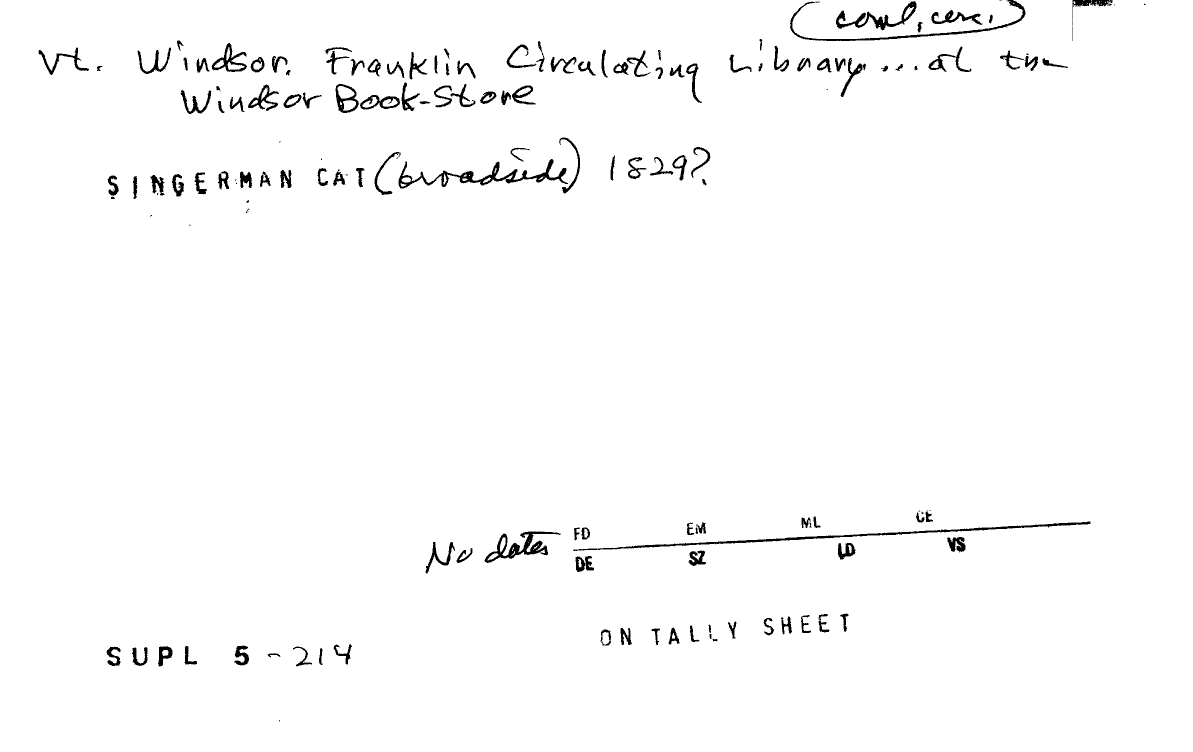 (coml, circ.)
Vt. Windsor. Franklin Circulating Library ... at the
Windsor Book-Store
SINGERMAN CAT (broadside) 1829?
No dates FD EM ML CE
DE SZ LD VS
ON TALLY SHEET
SUPL 5 - 214